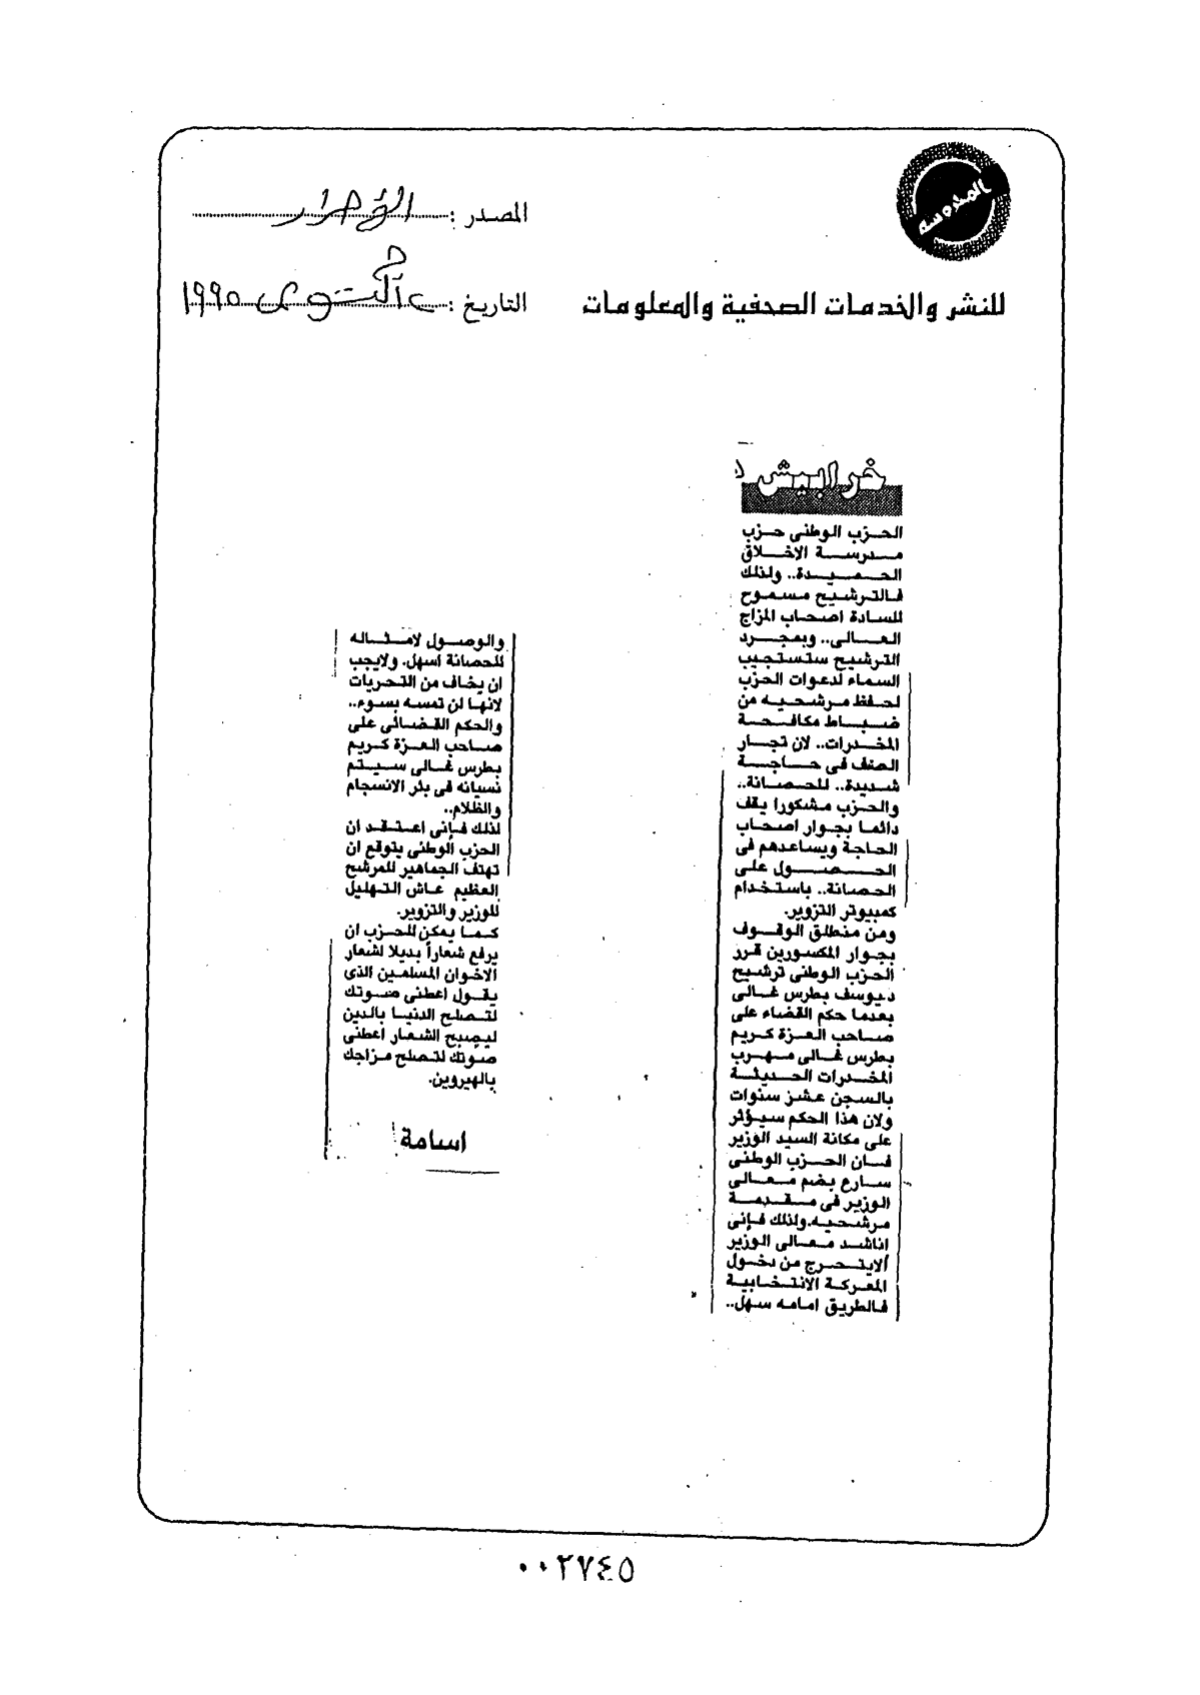 المصدر : الأحرار
للنشر والخدمات الصحفية والمعلومات
التاريخ : أكتوبر ١٩٩٥
خرابيش
الحزب الوطنى حزب
مدرسة الاخلاق
الحميدة.. ولذلك
فالترشيح مسموح
للسادة اصحاب المزاج
العالى.. وبمجرد
الترشيح ستستجيب
السماء لدعوات الحزب
لحفظ مرشحيه من
ضباط مكافحة
المخدرات.. لان تجار
الصنف فى حاجة
شديدة.. للحصانة..
والحزب مشكورا يقف
دائما بجوار اصحاب
الحاجة ويساعدهم فى
الحصول على
الحصانة.. باستخدام
كمبيوتر التزوير.
ومن منطلق الوقوف
بجوار المكسورين قرر
الحزب الوطنى ترشيح
د.يوسف بطرس غالى
بعدما حكم القضاء على
صاحب العزة كريم
بطرس غالى مهرب
المخدرات الحديثة
بالسجن عشر سنوات
ولان هذا الحكم سيؤثر
على مكانة السيد الوزير
فان الحزب الوطنى
سارع بضم معالى
الوزير فى مقدمة
مرشحيه.ولذلك فإنى
اناشد معالى الوزير
ألايتحرج من دخول
المعركة الانتخابية
فالطريق امامه سهل..
والوصول لامثاله
للحصانة اسهل. ولايجب
ان يخاف من التحريات
لانها لن تمسه بسوء..
والحكم القضائى على
صاحب العزة كريم
بطرس غالى سيتم
نسيانه فى بئر الانسجام
والظلام..
لذلك فإنى اعتقد ان
الحزب الوطنى يتوقع ان
تهتف الجماهير للمرشح
العظيم عاش التهليل
للوزير والتزوير.
كما يمكن للحزب ان
يرفع شعاراً بديلا لشعار
الاخوان المسلمين الذى
يقول اعطنى صوتك
لتصلح الدنيا بالدين
ليصبح الشعار اعطنى
صوتك لتصلح مزاجك
بالهيروين.
اسامة
٠٠٢٧٤٥